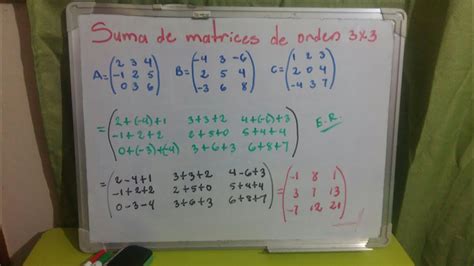 Suma de matrices de orden 3x3
A=(2 3 4
-1 2 5
0 3 6)
B=(-4 3 -6
2 5 4
-3 6 8)
C=(1 2 3
2 0 4
-4 3 7)
=(2+(-4)+1 3+3+2 4+(-6)+3
-1+2+2 2+5+0 5+4+4
0+(-3)+(-4) 3+6+3 6+8+7)
E.R.
=(2-4+1 3+3+2 4-6+3
-1+2+2 2+5+0 5+4+4
0-3-4 3+6+3 6+8+7)
=(-1 8 1
3 7 13
-7 12 21)